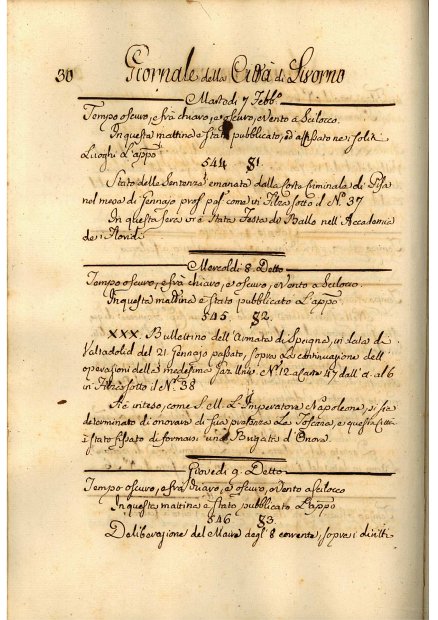 30 Giornale della Città di Livorno
Martedì 7 Febb.o
Tempo oscuro, e frà chiaro, e oscuro, e vento a Scilocco.
In questa mattina è stato pubblicato, ed affissato nei soliti
Luoghi L'app.o
544 §1.
Stato delle Sentenze emanate dalla Corte Criminale di Pisa
nel mese di Gennajo pros. pas. come in Filza sotto il N.o 37
In questa sera vi è stata Festa di Ballo nell'Accademia
dei Floridi
Mercoldì 8. Detto
Tempo oscuro, e frà chiaro, e oscuro, e vento a Scilocco.
In questa mattina è stato pubblicato L'app.o
545 §2.
XXX. Bullettino dell'Armata di Spagna, in data di
Valladolid del 21 Gennajo passato, sopra La continuazione dell'
operazioni della medesima N.o 12 a carte 47 dall' a. al 6
in Filza sotto il N.o 38
Si è inteso, come S. M. L'Imperatore Napoleone, si sia
determinato di onorare di sua presenza La Toscana, e questa Città
è stato fissato di formarsi una Brigata d'Onore.
Giovedì 9. Detto
Tempo oscuro, e frà chiaro, e oscuro, e vento a Scilocco
In questa mattina è stato pubblicato L'app.o
546 §3.
Deliberazione del Maire degl'8 corrente, sopra i diritti